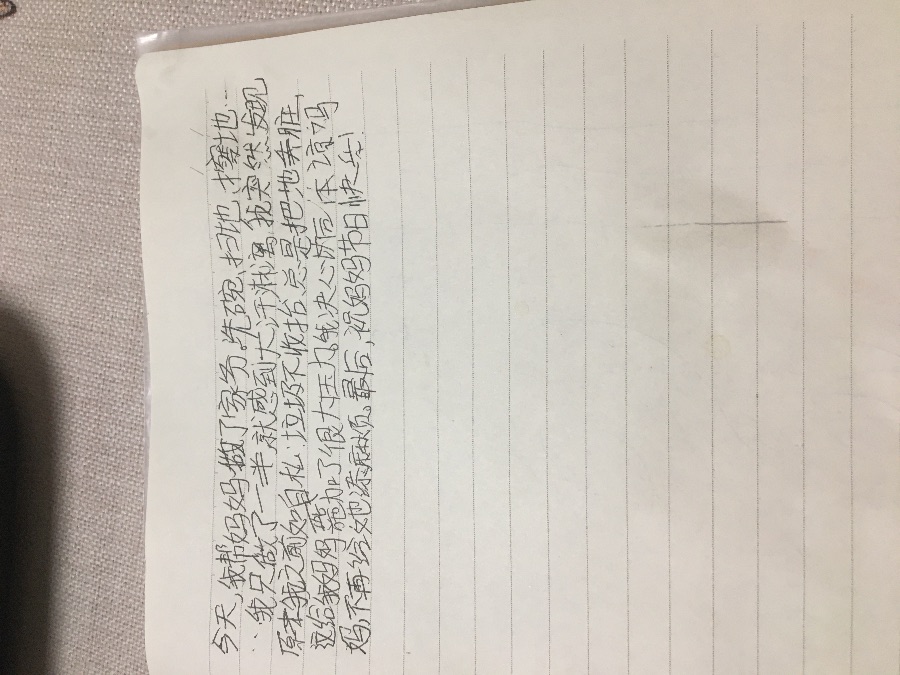 今天,我帮妈妈做了家务。洗碗、扫地、擦地…
…我只做了一半就感到大汗淋漓,我突然发现
原来我之前如此自私:垃圾不收拾,总是把地弄脏,
这给我妈妈增加了很大压力。我决心以后体谅妈
妈,不再给她添麻烦。最后,祝妈妈节日快乐!